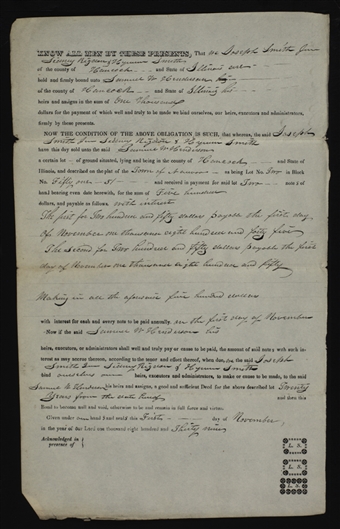 KNOW ALL MEN BY THESE PRESENTS, That we Joseph Smith Jun
Sidney Rigdon & Hyrum Smith
of the county of Hancock and State of Illinois are
held and firmly bound unto Samuel
of the county of Hancock and State of Illinois his
heirs and assigns in the sum of One thousand
dollars for the payment of which well and truly to be made we bind ourselves, our heirs, executors and administrators,
firmly by these presents.
NOW THE CONDITION OF THE ABOVE OBLIGATION IS SUCH, that whereas, the said Joseph
Smith Jun Sidney Rigdon & Hyrum Smith
have this day sold unto the said Samuel
a certain lot of ground situated, lying and being in the county of Hancock and State of
Illinois, and described on the plot of the Town of Nauvoo as being Lot No. Two in Block
No. Fifty one - 51 - and received in payment for said lot Two notes of
hand bearing even date herewith, for the sum of Five hundred
dollars, and payable as follows, with interest
The first for Two hundred and fifty dollars payable the first day
of November one thousand eight hundred and forty five
The second for Two hundred and fifty dollars payable the first
day of November one thousand eight hundred and fifty
Making in all the aforesaid five hundred dollars
with interest for each and every note to be paid annually, on the first day of November
Now if the said Samuel his
heirs, executors, or administrators shall well and truly pay or cause to be paid, the amount of said notes with such in-
terest as may accrue thereon, according to the tenor and effect thereof, when due, the said Joseph
Smith Jun Sidney Rigdon & Hyrum Smith
bind ourselves our heirs, executors and administrators, to make or cause to be made, to the said
Samuel his heirs and assigns, a good and sufficient Deed for the above described lot Twenty
Years from the date hereof and then this
Bond to become null and void, otherwise to be and remain in full force and virtue.
Given under our hand and seal this First day of November,
in the year of our Lord one thousand eight hundred and Thirty nine
Acknowledged in
presence of
L. S.
L. S.
L. S.